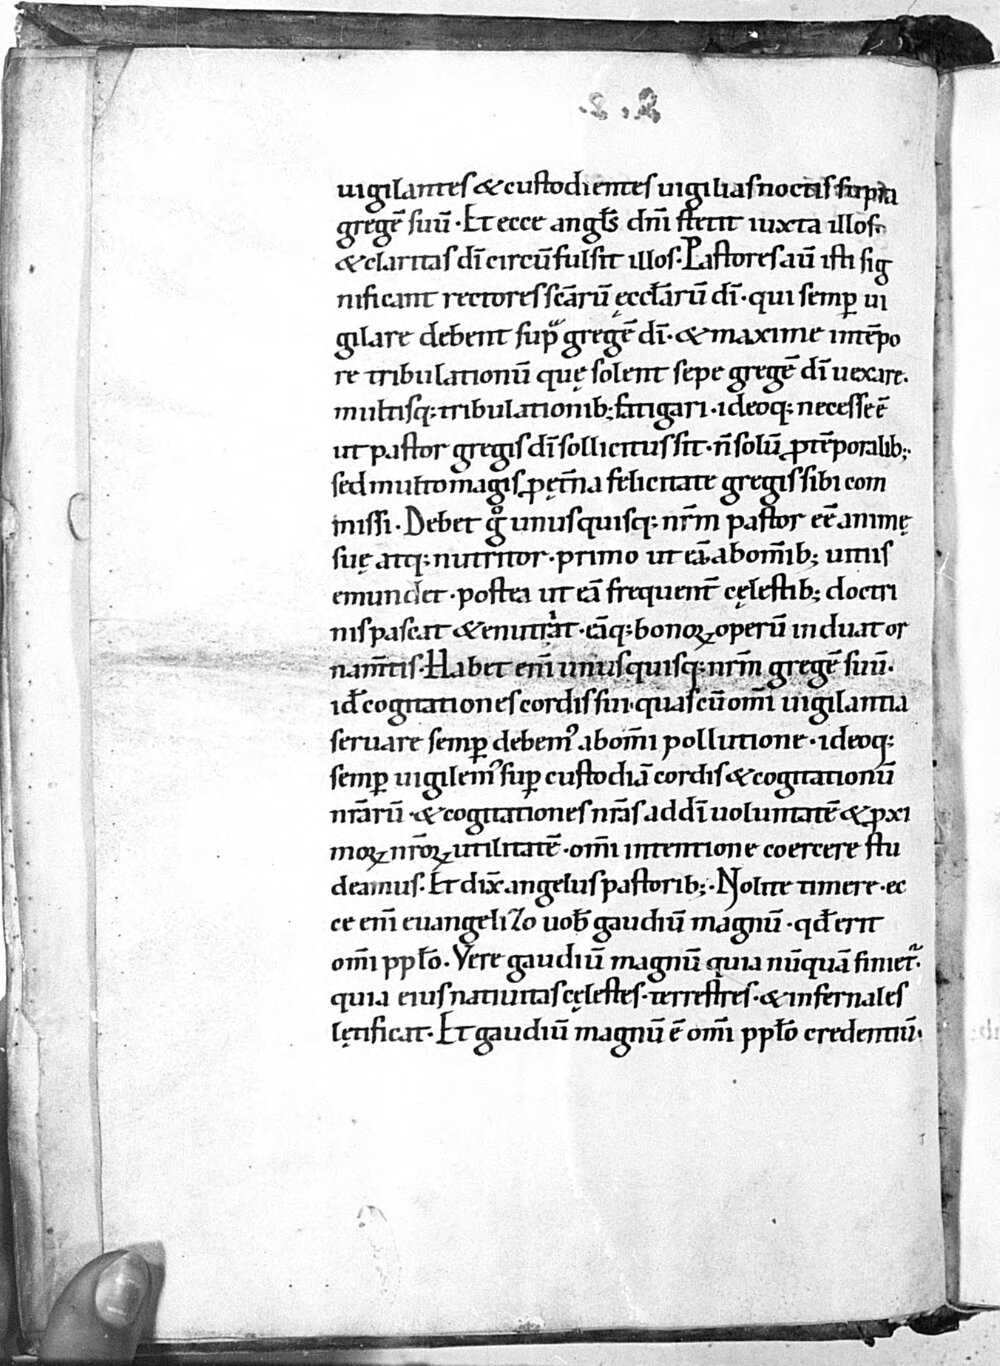 .2.2.
uigilantes & custodientes uigilias noctis supra
gregē suū · Et ecce angl̄s dn̄i stetit iuxta illos·
& claritas dī circūfulsit illos · Pastores aū isti sig
nificant rectores scārū ęccl̄arū dī · qui semꝑ ui
gilare debent suꝑ gregē dī · & maxime intēpo
re tribulationū quę solent sepe gregē dī uexare ·
multisq; tribulationib; fatigari · ideoq; necesse ē
ut pastor gregis dī sollicitus sit · n̄ solū ꝓ tēporalib; ·
sed multo magis ꝓ ęt̄na felicitate gregis sibi com
missi · Debet gͦ unusquisq; nr̄m pastor ēē animę
suę atq; nutritor · primo ut eā ab om̄ib; uitiis
emundet · postea ut eā frequent̄ cęlestib; doctri
nis pascat & enutriat · eāq; bonoꝝ operū induat or
nam̄tis · Habet em̄ unusquisq; nr̄m gregē suū ·
id ē cogitationes cordis sui · quas cū om̄i uigilantia
seruare semꝑ debemꝰ ab om̄i pollutione · ideoq;
semꝑ uigilemꝰ suꝑ custodiā cordis & cogitationū
nr̄arū · & cogitationes nr̄as ad dī uoluntatē & ꝓxi
moꝝ nr̄oꝝ utilitatē · om̄i intentione coercere stu
deamus · Et dix̄ angelus pastorib; · Nolite timere · ec
ce em̄ euangelizo uob̄ gaudiū magnū · qđ erit
om̄i ppl̄o · Vere gaudiū magnū quia nūquā finiet᷑ ·
quia eius natiuitas cęlestes · terrestres · & infernales
lętificat · Et gaudiū magnū ē om̄i ppl̄o credentiū ·